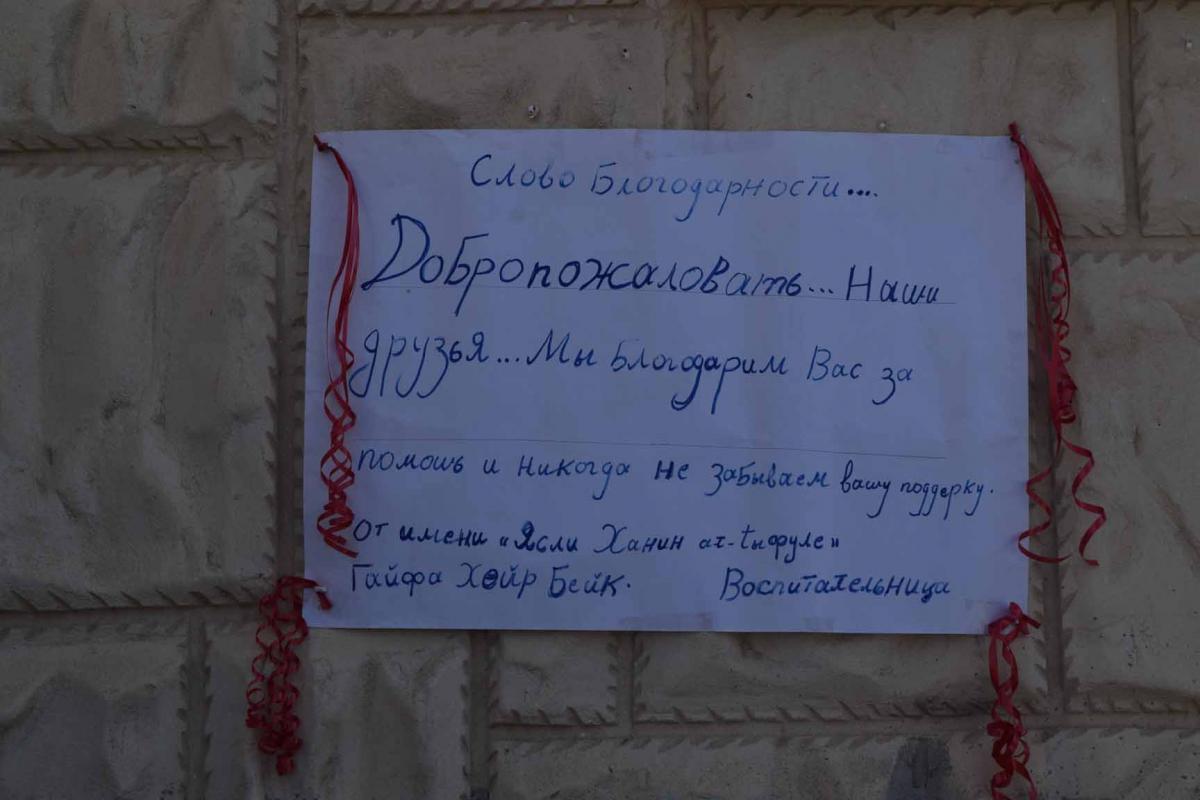 Слово Благодарности...
Добропожаловать... Наши
друзья... Мы благодарим Вас за
помошь и никогда не забываем вашу поддерку.
От имени «Ясли Ханин ат-тыфуле»
Гайфа Хейр Бейк. Воспитательница